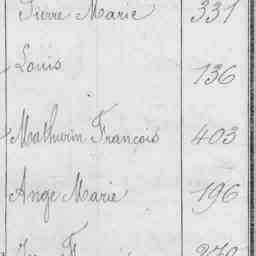 Pierre Marie 331
Louis 136
Mathurin François 403
Ange Marie 196